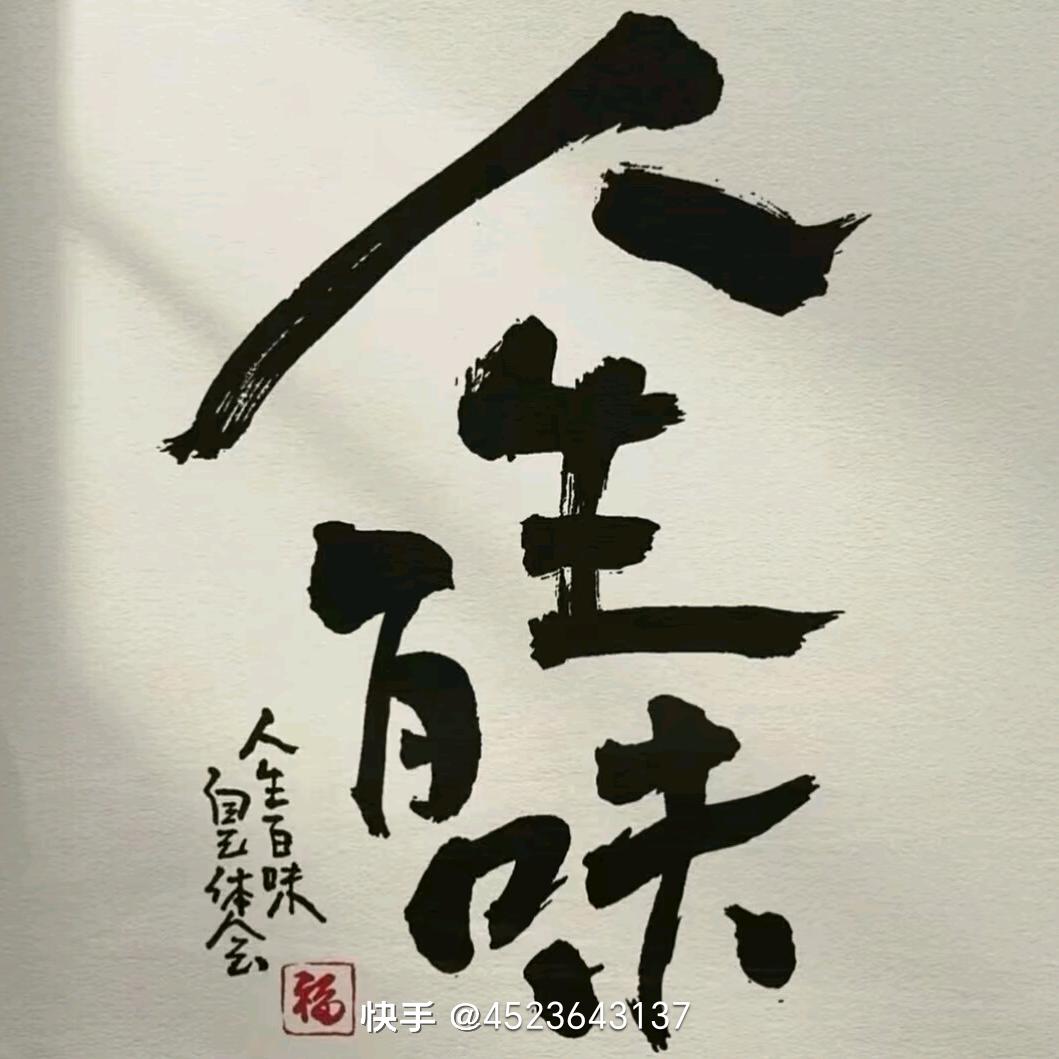 人生
百味
人生百味
自己体会
福
快手 @4523643137